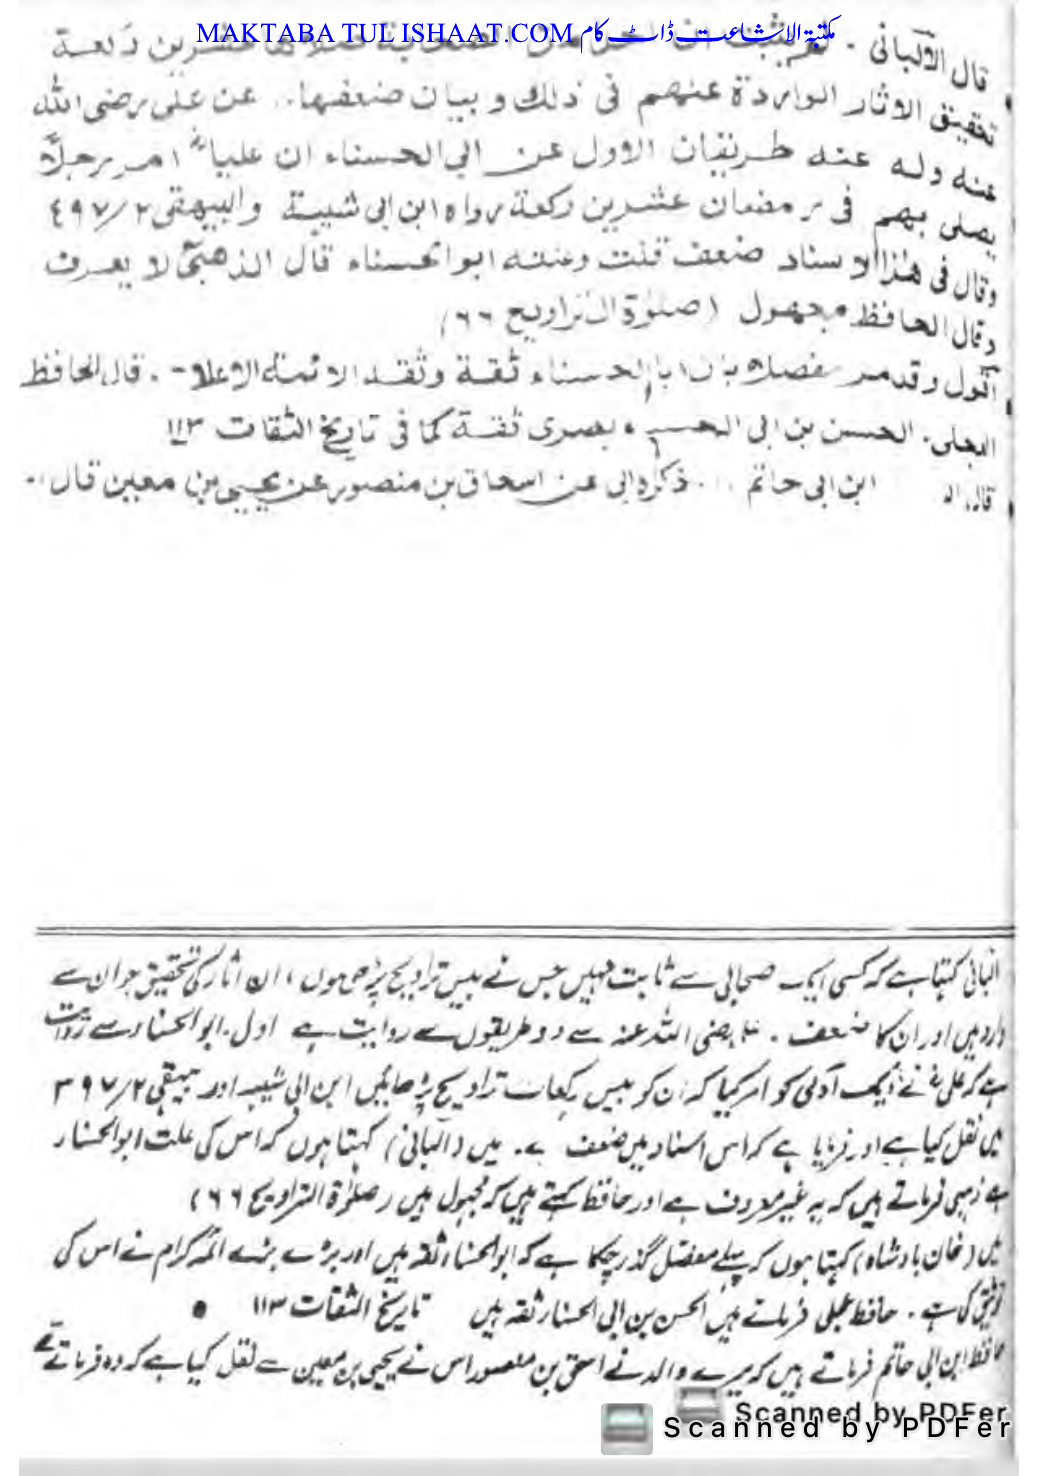 MAKTABA TUL ISHAAT.COM مكتبة الاشاعت ڈاٹ کام
قال الألبانی . لم يثبت ان احدا من الصحابة صلاها عشرين ركعة
تحقيق الاثار الواردة عنهم فی ذلك و بيان ضعفها.. عن علی رضی الله
عنه وله عنه طريقان الاول عن ابی الحسناء ان عليا امر رجلاً
يصلی بهم فی رمضان عشرين ركعة رواه ابن ابی شيبة والبيهقی ٤٩٧/٢
وقال فی هذا الاسناد ضعف قلت وعلته ابو الحسناء قال الذهبیؒ لا يعرف
وقال الحافظ مجهول (صلوٰة التراويح ٦٦)
اقول وقد مر مفصلاً بان ابا الحسناء ثقة وثقه الائمة الاعلام . قال الحافظ
العجلی. الحسن بن ابی الحسناء بصری ثقة كما فی تاريخ الثقات ١١٣
قال ابن ابی حاتم ... ذكره ابی عن اسحاق بن منصور عن يحيی بن معين قال..
البانی کہتا ہے کہ کسی ایک صحابی سے ثابت نہیں جس نے بیس تراویح پڑھی ہوں، ان اثار کی تحقیق جو ان سے
وارد ہیں اور ان کا ضعف . علی رضی اللہ عنہ سے دو طریقوں سے روایت ہے اول. ابو الحسناء سے روایت
ہے کہ علیؓ نے ایک آدمی کو امر کیا کہ ان کو بیس رکعات تراویح پڑھائیں ابن ابی شیبہ اور بیہقی ٣٩٧/٢
میں نقل کیا ہے اور فرمایا ہے کہ اس اسناد میں ضعف ہے. میں (البانی) کہتا ہوں کہ اس کی علت ابو الحسناء
ہے ذہبی فرماتے ہیں کہ یہ غیر معروف ہے اور حافظ کہتے ہیں کہ مجہول ہیں (صلوٰة التراویح ٦٦)
میں (خان بادشاہ) کہتا ہوں کہ پہلے مفصل گذر چکا ہے کہ ابو الحسناء ثقہ ہیں اور بڑے بڑے ائمہ کرام نے اس کی
توثیق کی ہے . حافظ عجلی فرماتے ہیں الحسن بن ابی الحسناء ثقہ ہیں تاریخ الثقات ١١٣
حافظ ابن ابی حاتم فرماتے ہیں کہ میرے والد نے اسحٰق بن منصور اس نے یحیی بن معین سے نقل کیا ہے کہ وہ فرماتے
Scanned by PDFer
Scanned by PDFer